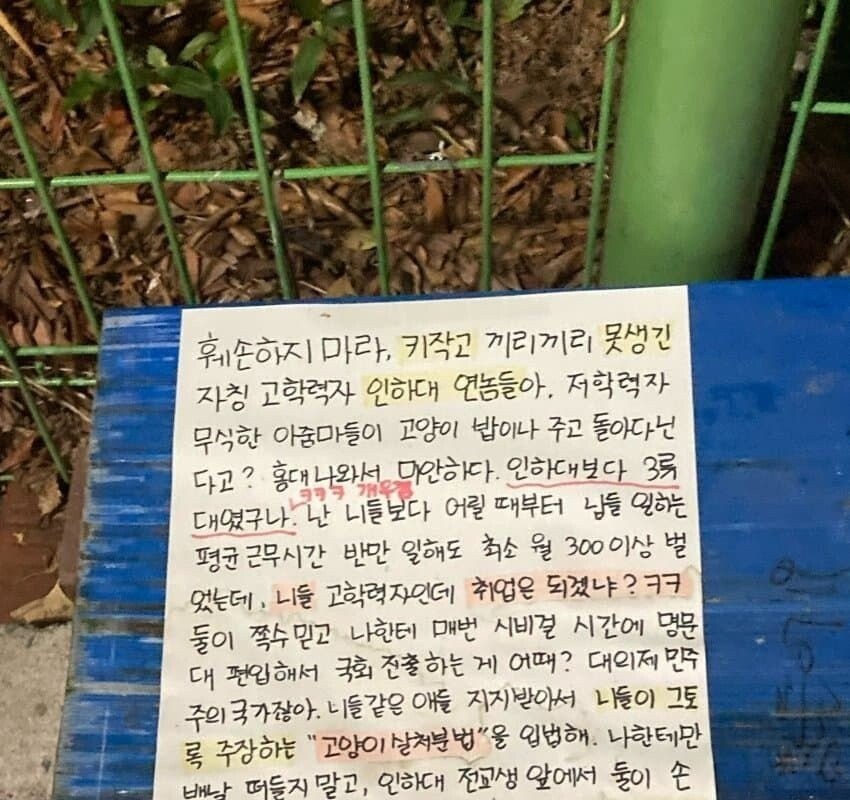 훼손하지 마라, 키작고 끼리끼리 못생긴
자칭 고학력자 인하대 연놈들아. 저학력자
무식한 아줌마들이 고양이 밥이나 주고 돌아다닌
다고? 홍대나와서 미안하다. 인하대보다 3류
ㅋㅋㅋ 개웃김
대였구나. 난 니들보다 어릴 때부터 남들 일하는
평균 근무시간 반만 일해도 최소 월 300이상 벌
었는데, 니들 고학력자인데 취업은 되겠냐? ㅋㅋ
둘이 쪽수믿고 나한테 매번 시비걸 시간에 명문
대 편입해서 국회 진출하는 게 어때? 대의제 민주
주의 국가잖아. 니들같은 애들 지지받아서 니들이 그토
록 주장하는 "고양이 살처분법"을 입법해. 나한테만
맨날 떠들지 말고, 인하대 전교생 앞에서 둘이 손